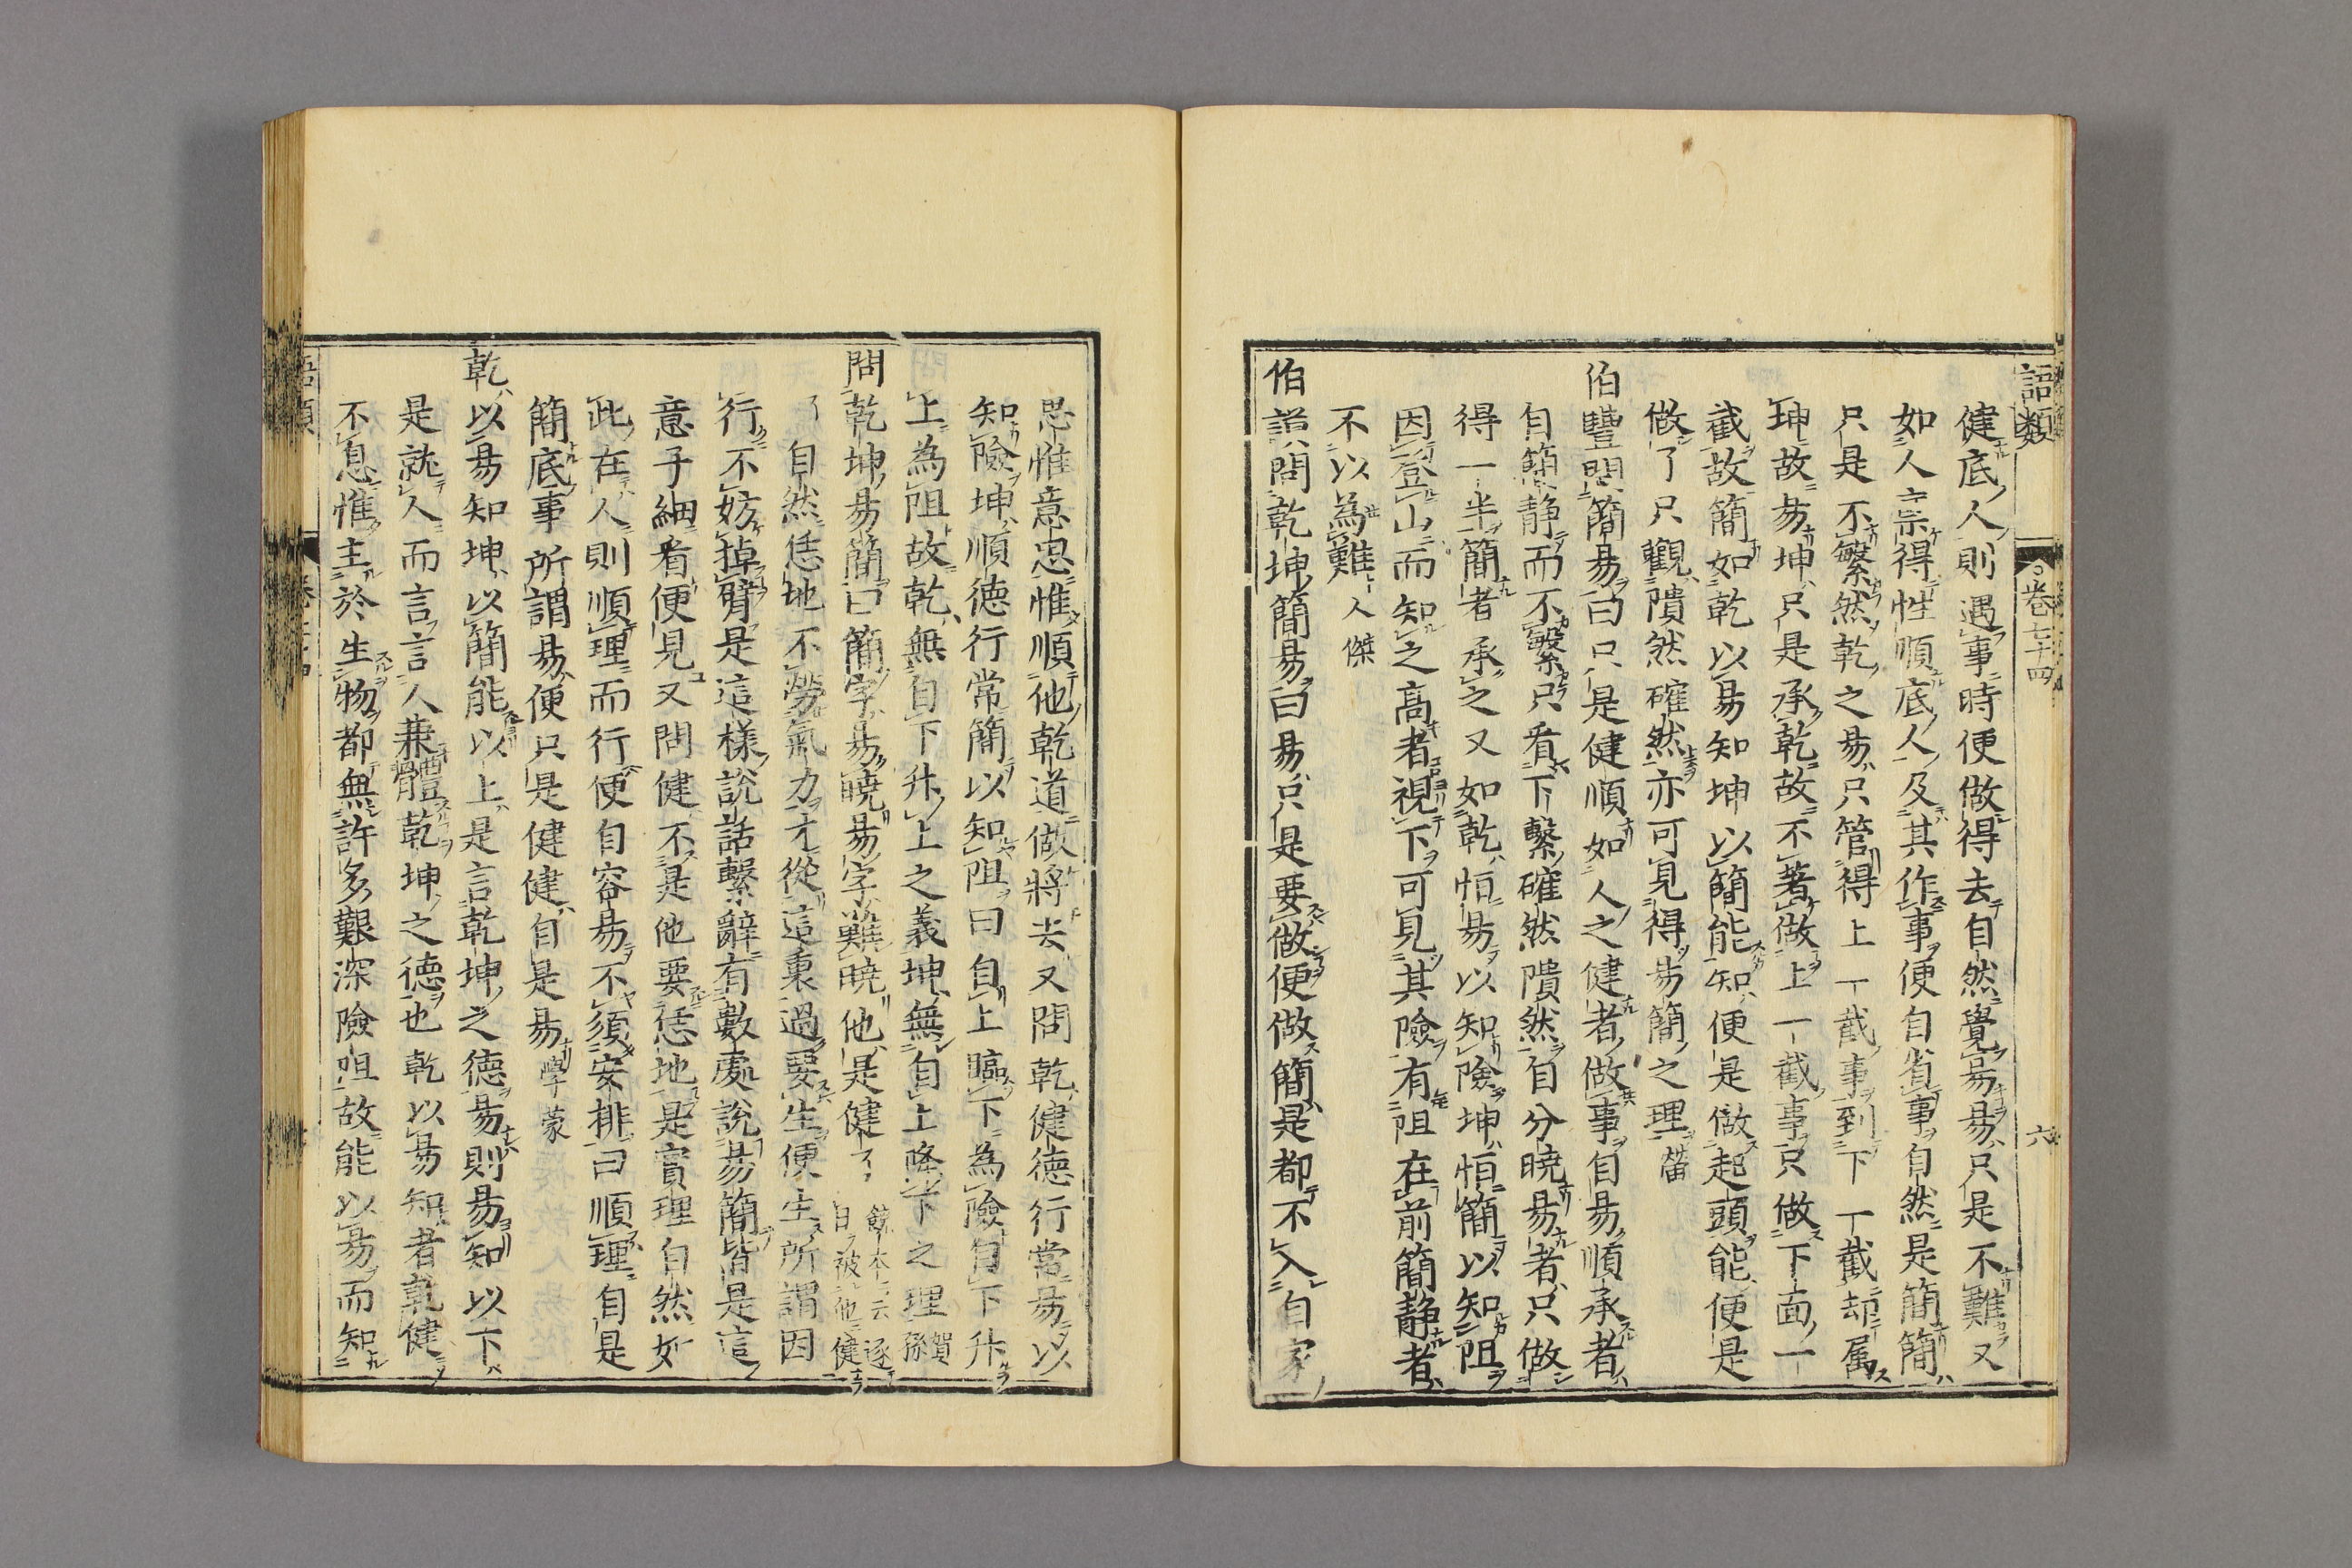 語類
卷七十四
六
健底人則遇事時便做得去自然覺易易只是不難又
如人稟得性順底人及其作事便自省事自然是簡簡
只是不繁然乾之易只管得上一截事到下一截却属
坤故易坤只是承乾故不著做上一截事只做下面一
截故簡如乾以易知坤以簡能知便是做起頭能便是
做了只觀隤然確然亦可見得易簡之理㽦
伯豐問簡易曰只是健順如人之健者做事自易順承者
自簡静而不繁只看下繫確然隤然自分曉易者只做
得一半簡者承之又如乾恒易以知險坤恒簡以知阻
因登山而知之高者視下可見其險有阻在前簡静者
不以為難人傑
伯謨問乾坤簡易曰易只是要做便做簡是都不入自家
思惟意思惟順他乾道做將去又問乾健德行常易以
知險坤順德行常簡以知阻曰自上臨下為險自下升
上為阻故乾無自下升上之義坤無自上降下之理賀孫
問乾坤易簡曰簡字易曉易字難曉他是健了饒本云逐日被他健
了自然恁地不勞氣力才從這裏過要生便生所謂因
行不妨掉臂是這樣說話繫辭有數處說易簡皆是這
意子細看便見又問健不是他要恁地是實理自然如
此在人則順理而行便自容易不須安排曰順理自是
簡底事所謂易便只是健健自是易學蒙
乾以易知坤以簡能以上是言乾坤之德易則易知以下
是就人而言言人兼體乾坤之德也乾以易知者乾健
不息惟主於生物都無許多艱深險阻故能以易而知